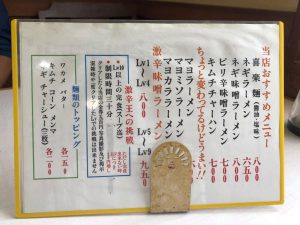 当店おすすめメニュー
喜楽麺(醤油・塩味) 八〇〇
ネギラーメン 六五〇
ネギ味噌ラーメン 八〇〇
ピリ辛味噌ラーメン 七〇〇
キムチチャーハン 七〇〇
ちょっと変わってるけどうまい!!
マヨラーメン
マヨミソラーメン
マヨカララーメン
激辛味噌ラーメン
Lv1〜Lv4 八〇〇
Lv5〜Lv9 九五〇
激辛王への挑戦
Lv10以上の完食(スープ迄)
制限時間三十分
麺類のトッピング
ワカメ バター 各一五〇
キムチ コーン メンマ
ネギ チャーシュー(三枚) 各二〇〇